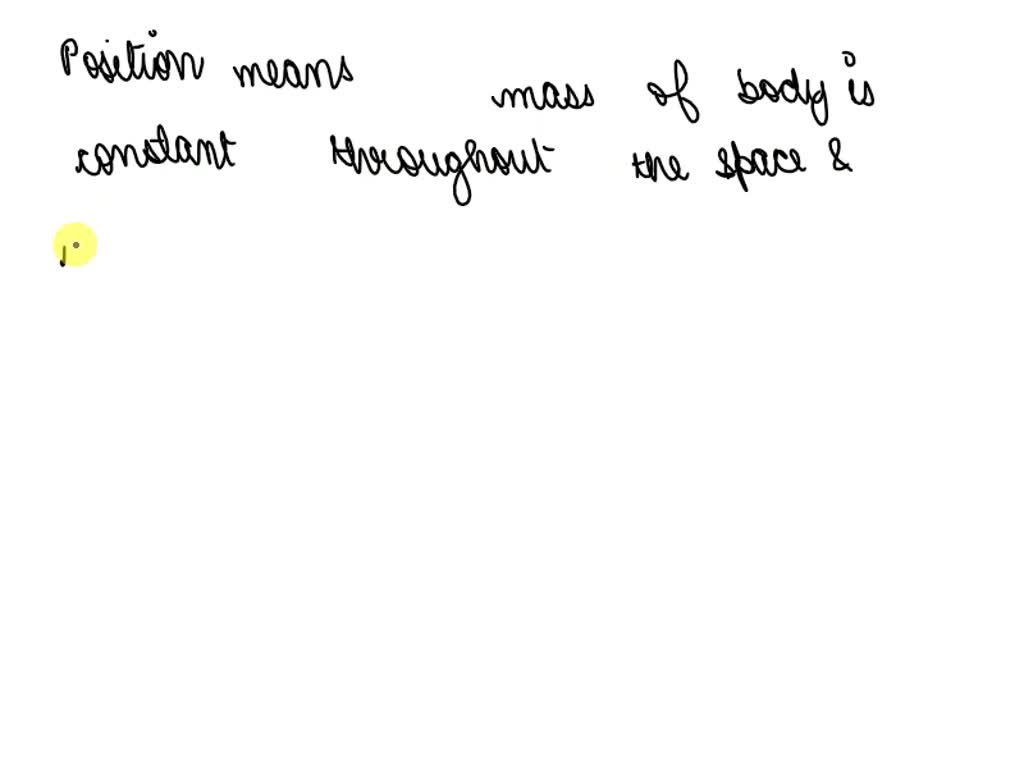 Position means mass of body is
constant throughout the space &